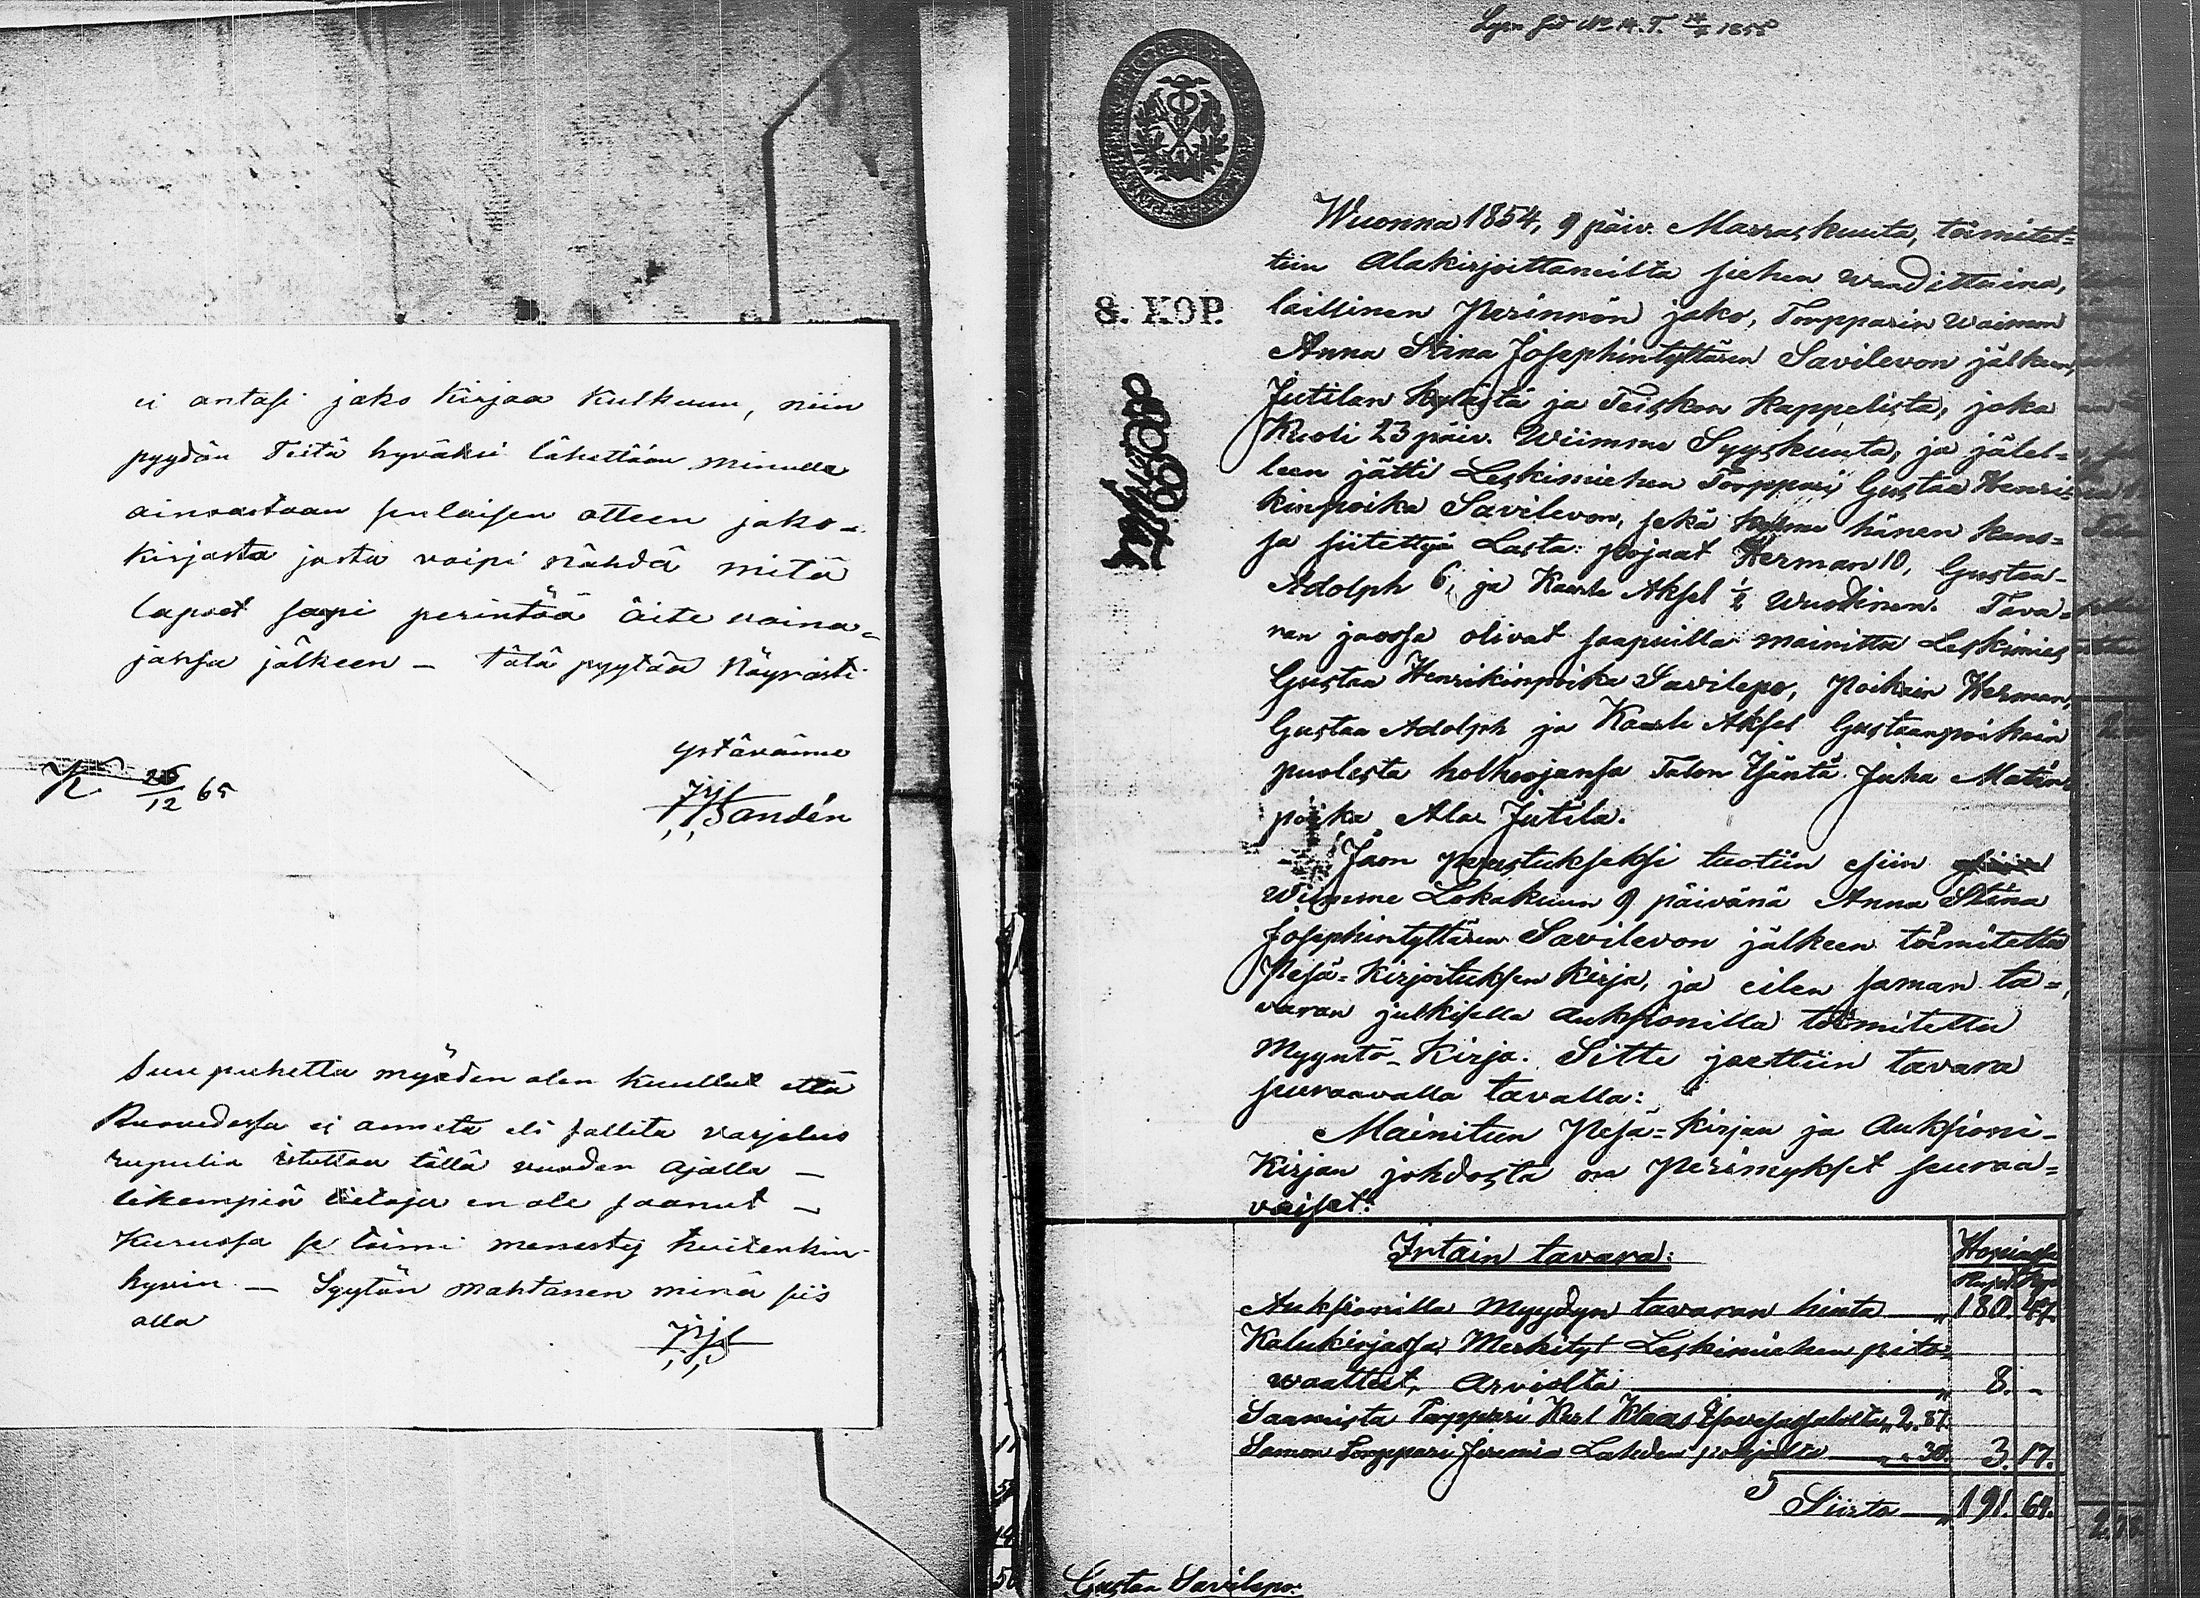 ei antasi jako kirjaa kulkuun, niin
pyydän Teitä hyväksi lähettään minulle
ainoastaan senlaisen otteen jako-
kirjasta josta voipi nähdä mitä
lapset saapi perintöä äite vaina-
jansa jälkeen – tätä pyytää Nöyrästi
ystävänne
Sandén
K. 26/12 65
Suu puhetta myöden olen kuullut että
Ruovedessa ei anneta eli sallita varjelus
rupulia istuttaa tällä vuoden ajalla –
likempiä tietoja en ole saanut –
Kurussa se toimi menesty kuitenkin
hyvin – Syytön mahtanen minä siis
olla
1858
8. KOP.
Wuonna 1854, 9 päiv. Marraskuuta, toimitet=
tiin Alakirjoittaneilta siehen waadittaina,
laillinen Perinnön jako, Torpparin Waimon
Anna Stina Josephintyttären Savilevon jälkeen,
Jutilan kylästä ja Teiskon kappelista, joka
Kuoli 23 päiv. Wiimme Syyskuuta, ja jälel=
leen jätti Leskimiehen Torppari Gustaa Henri=
kinpoika Savilevon, sekä kolme hänen kans=
sa siitettyä Lasta: pojaat Herman 10, Gustaa-
Adolph 6, ja Kaarle Aksel ½ Wuodinen. Tava=
ran jaossa olivat saapuilla mainittu Leskimies
Gustaa Henrikinpoika Savilepo, Poikain Herman,
Gustaa Adolph ja Kaarle Aksel Gustaanpoikain
puolesta holhoojansa Talon Isäntä Juha Matin
poika Ala Jutila.
Jaon perustukseksi tuotiin esiin
Wiimme Lokakuun 9 päivänä Anna Stina
Josephintyttären Savilevon jälkeen toimitettu
Pesä=Kirjoituksen Kirja, ja eilen saman ta=
varan julkisella Auksionilla toimitettu
Myyntö-Kirja. Sitte jaettiin tavara
seuraavalla tavalla:
Mainitun Pesä=Kirjan ja Auksioni-
Kirjan johdosta on Perimykset seuraa=
vaiset:
Irtain tavara: Hopiassa
Rupl. Kop.
Auksionilla Myydyn tavaran hinta „ 180. 47.
Kalukirjassa Merkityt Leskimiehen pito=
waatteet, Arviolta „ 8. -
Saamista Torppari Karl Klaas „ 2. 87.
Samon Torppari Jeremia Lahden pohjalta „ 30. 3. 17.
Siirto „ 191. 64.
Gustaa Savilepo: